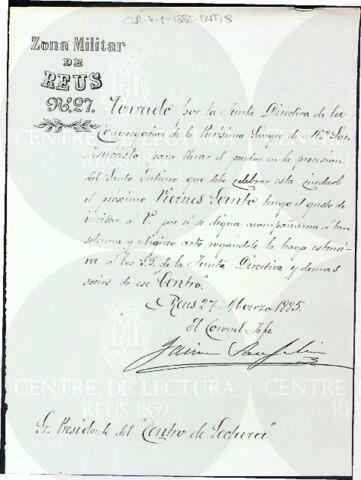 CLR-4-1-1885-ENT18
Zona Militar
DE
REUS
Nº 27.
por la Junta Directiva de la
Congregacion de la Purísima Sangre de Ntro Sor
Jesucristo para llevar el pendon en la procesion
del Santo Entierro que debe celebrar esta ciudad
el próximo Viernes Santo tengo el gusto de
invitar á V. por si se digna acompañarme á tan
solemne y religioso acto rogandole la haga estensi-
va á los S.S. de la Junta Directiva y demas
socios de ese "Centro".
Reus 27 Marzo 1885.
El Coronel Jefe
Jaime
Sr. Presidente del "Centro de Lectura"
CENTRE DE LECTURA
REUS 1859